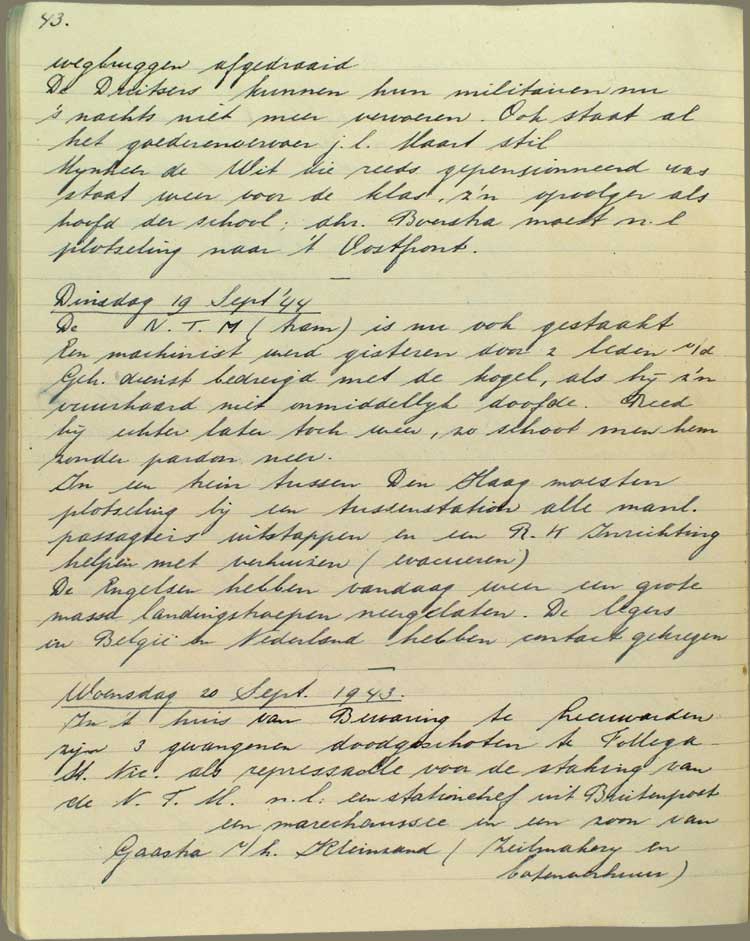 43.
wegbruggen afgedraaid
De Druitsers kunnen hun militairen nu
's nachts niet meer vervoeren. Ook staat al
het goederenvervoer j.l. Maart stil
Mynheer de Wit die reeds gepensionneerd was
staat weer voor de klas, z'n opvolger als
hoofd der school; dhr. Boersha moest n.l
plotseling naar 't Oostfront.
Dinsdag 19 Sept '44
De N. T. M (tram) is nu ook gestaakt
Een machinist werd gisteren door 2 leden v/d
Geh. dienst bedreigd met de kogel, als hy z'n
vuurhaard niet onmiddellyk doofde. Reed
hy echter later toch weer, zo schoot men hem
zonder pardon neer.
In een trein tussen Den Haag moesten
plotseling bij een tussenstation alle manl.
passagiers uitstappen en een R. K Inrichting
helpen met verhuizen (evacueren)
De Engelsen hebben vandaag weer een grote
massa landingstroepen neergelaten. De legers
in België en Nederland hebben contact gekregen
Woensdag 20 Sept. 1943.
In 't huis van Bewaring te Leeuwarden
zyn 3 gevangenen doodgeschoten te Follega
St. Nic. als repressaille voor de staking van
de N. T. M. n.l: een stationchef uit Buitenpost
een marechaussee en een zoon van
Gaastra v/h. Kleinzand (Zeilmakery en
botenverhuur)